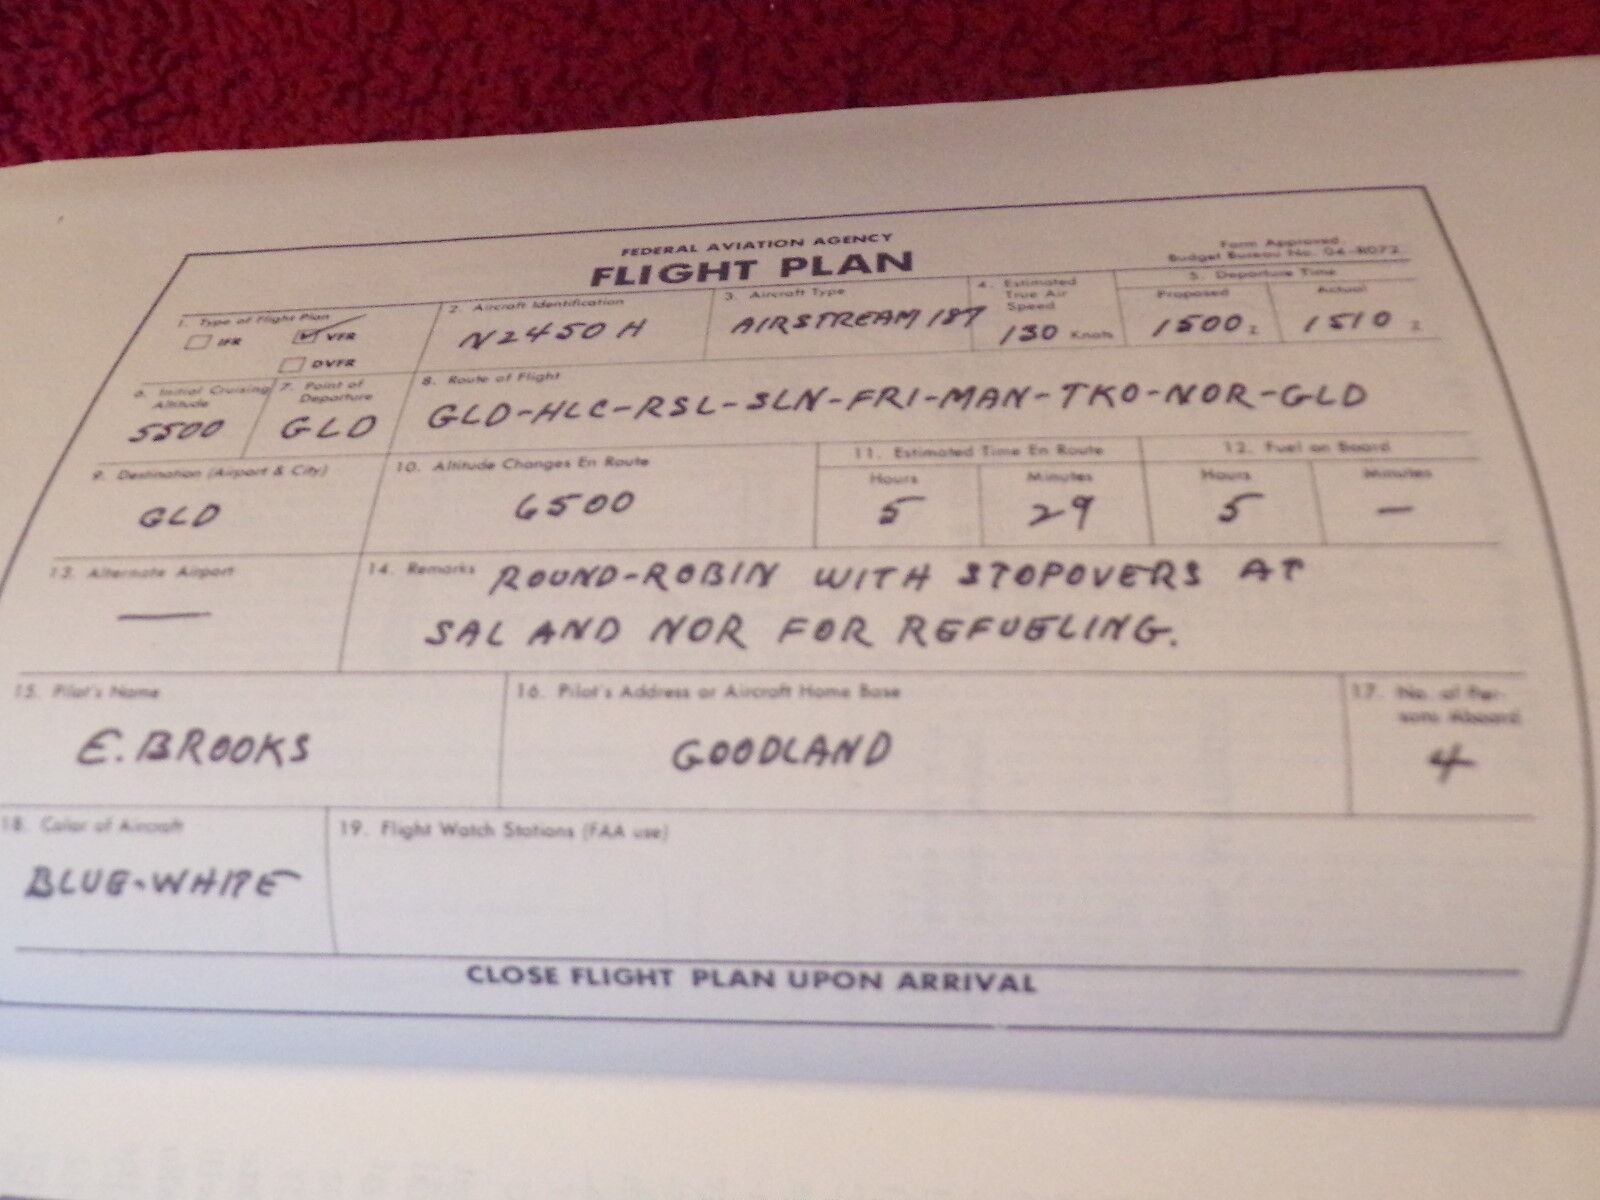 FEDERAL AVIATION AGENCY
FLIGHT PLAN
Form Approved.
Budget Bureau No. 04-R072
1. Type of Flight Plan
IFR
VFR
DVFR
2. Aircraft Identification
N2450H
3. Aircraft Type
AIRSTREAM 187
4. Estimated
True Air
Speed
130 Knots
5. Departure Time
Proposed
1500 Z
Actual
1510 Z
6. Initial Cruising
Altitude
5500
7. Point of
Departure
GLD
8. Route of Flight
GLD-HLC-RSL-SLN-FRI-MAN-TKO-NOR-GLD
9. Destination (Airport & City)
GLD
10. Altitude Changes En Route
6500
11. Estimated Time En Route
Hours
5
Minutes
29
12. Fuel on Board
Hours
5
Minutes
—
13. Alternate Airport
—
14. Remarks ROUND-ROBIN WITH STOPOVERS AT
SAL AND NOR FOR REFUELING.
15. Pilot's Name
E. BROOKS
16. Pilot's Address or Aircraft Home Base
GOODLAND
17. No. of Per-
sons Aboard
4
18. Color of Aircraft
BLUE-WHITE
19. Flight Watch Stations (FAA use)
CLOSE FLIGHT PLAN UPON ARRIVAL